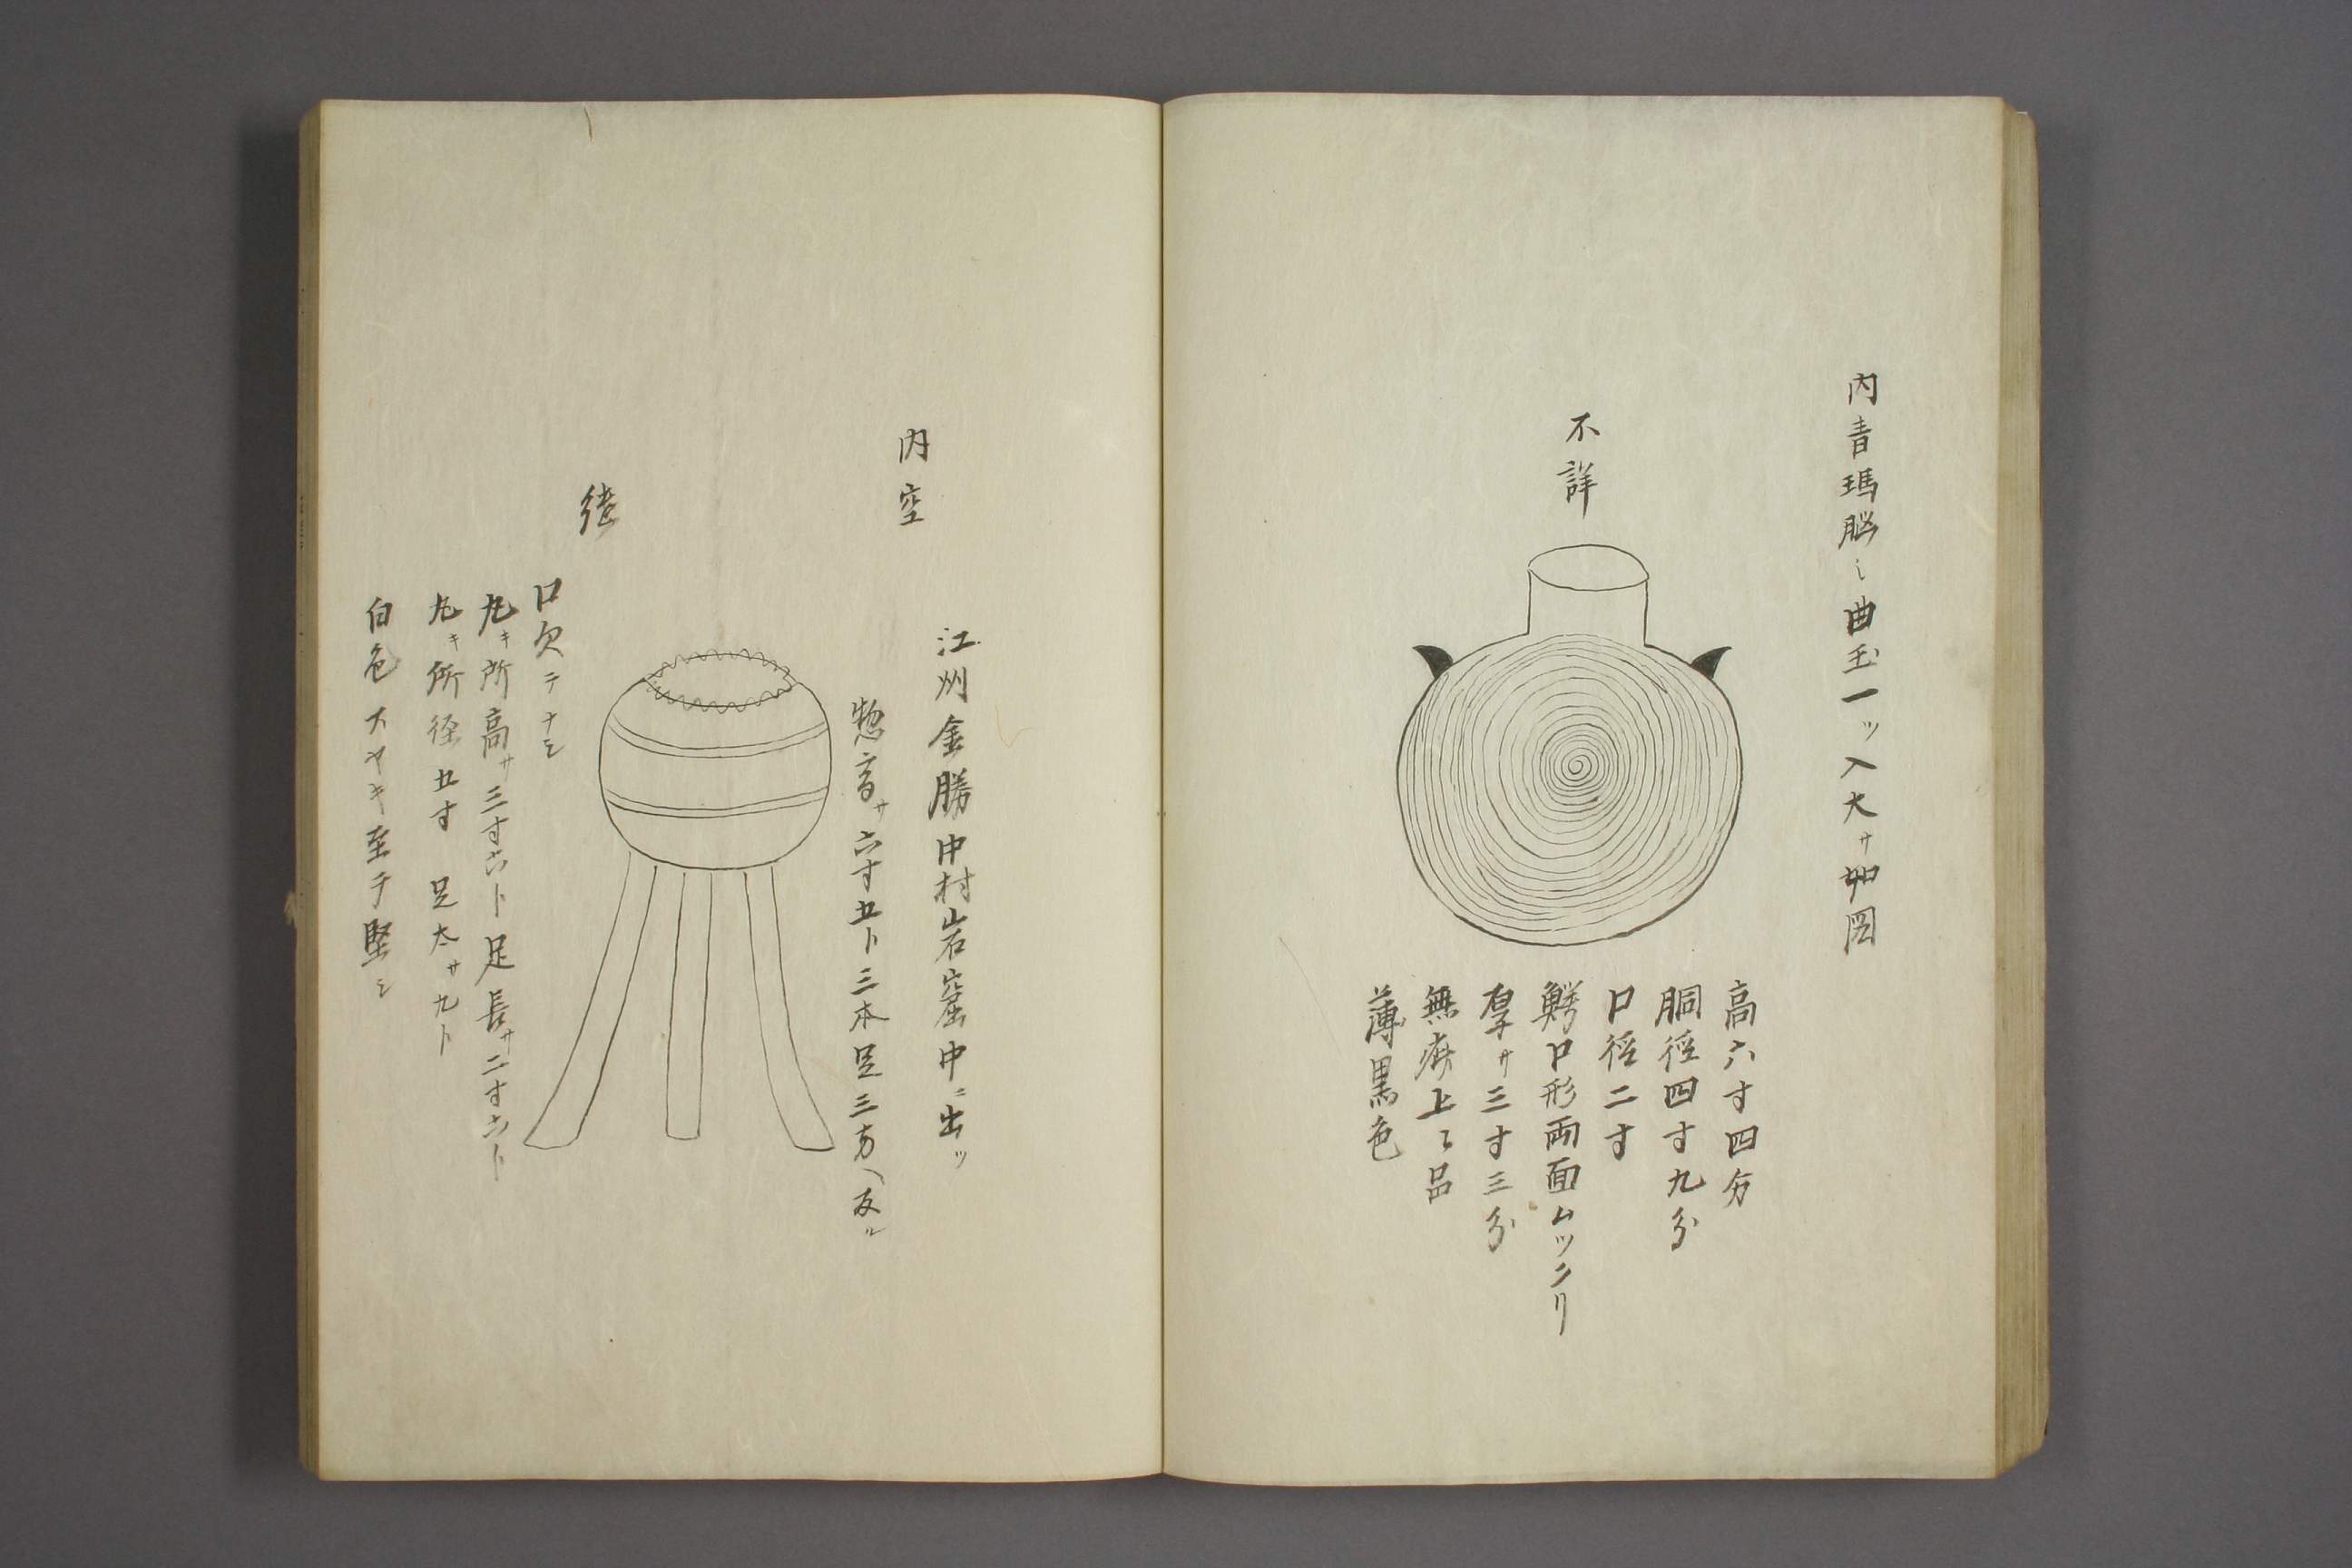 内青瑪脳之曲玉一ッ入大サ如図
不詳
高六寸四分
胴径四寸九分
口径二寸
鰐口形両面ムックリ
厚サ三寸三分
無疵上々品
薄黒色
江州金勝中村岩窟中ニ出ッ
内空
惣高サ六寸五卜三本足三方ヘ反ル
口欠テナシ
丸キ所高サ三寸六卜足長サ二寸六卜
丸キ所径五寸 足太サ九卜
白色スヤキ至テ堅シ